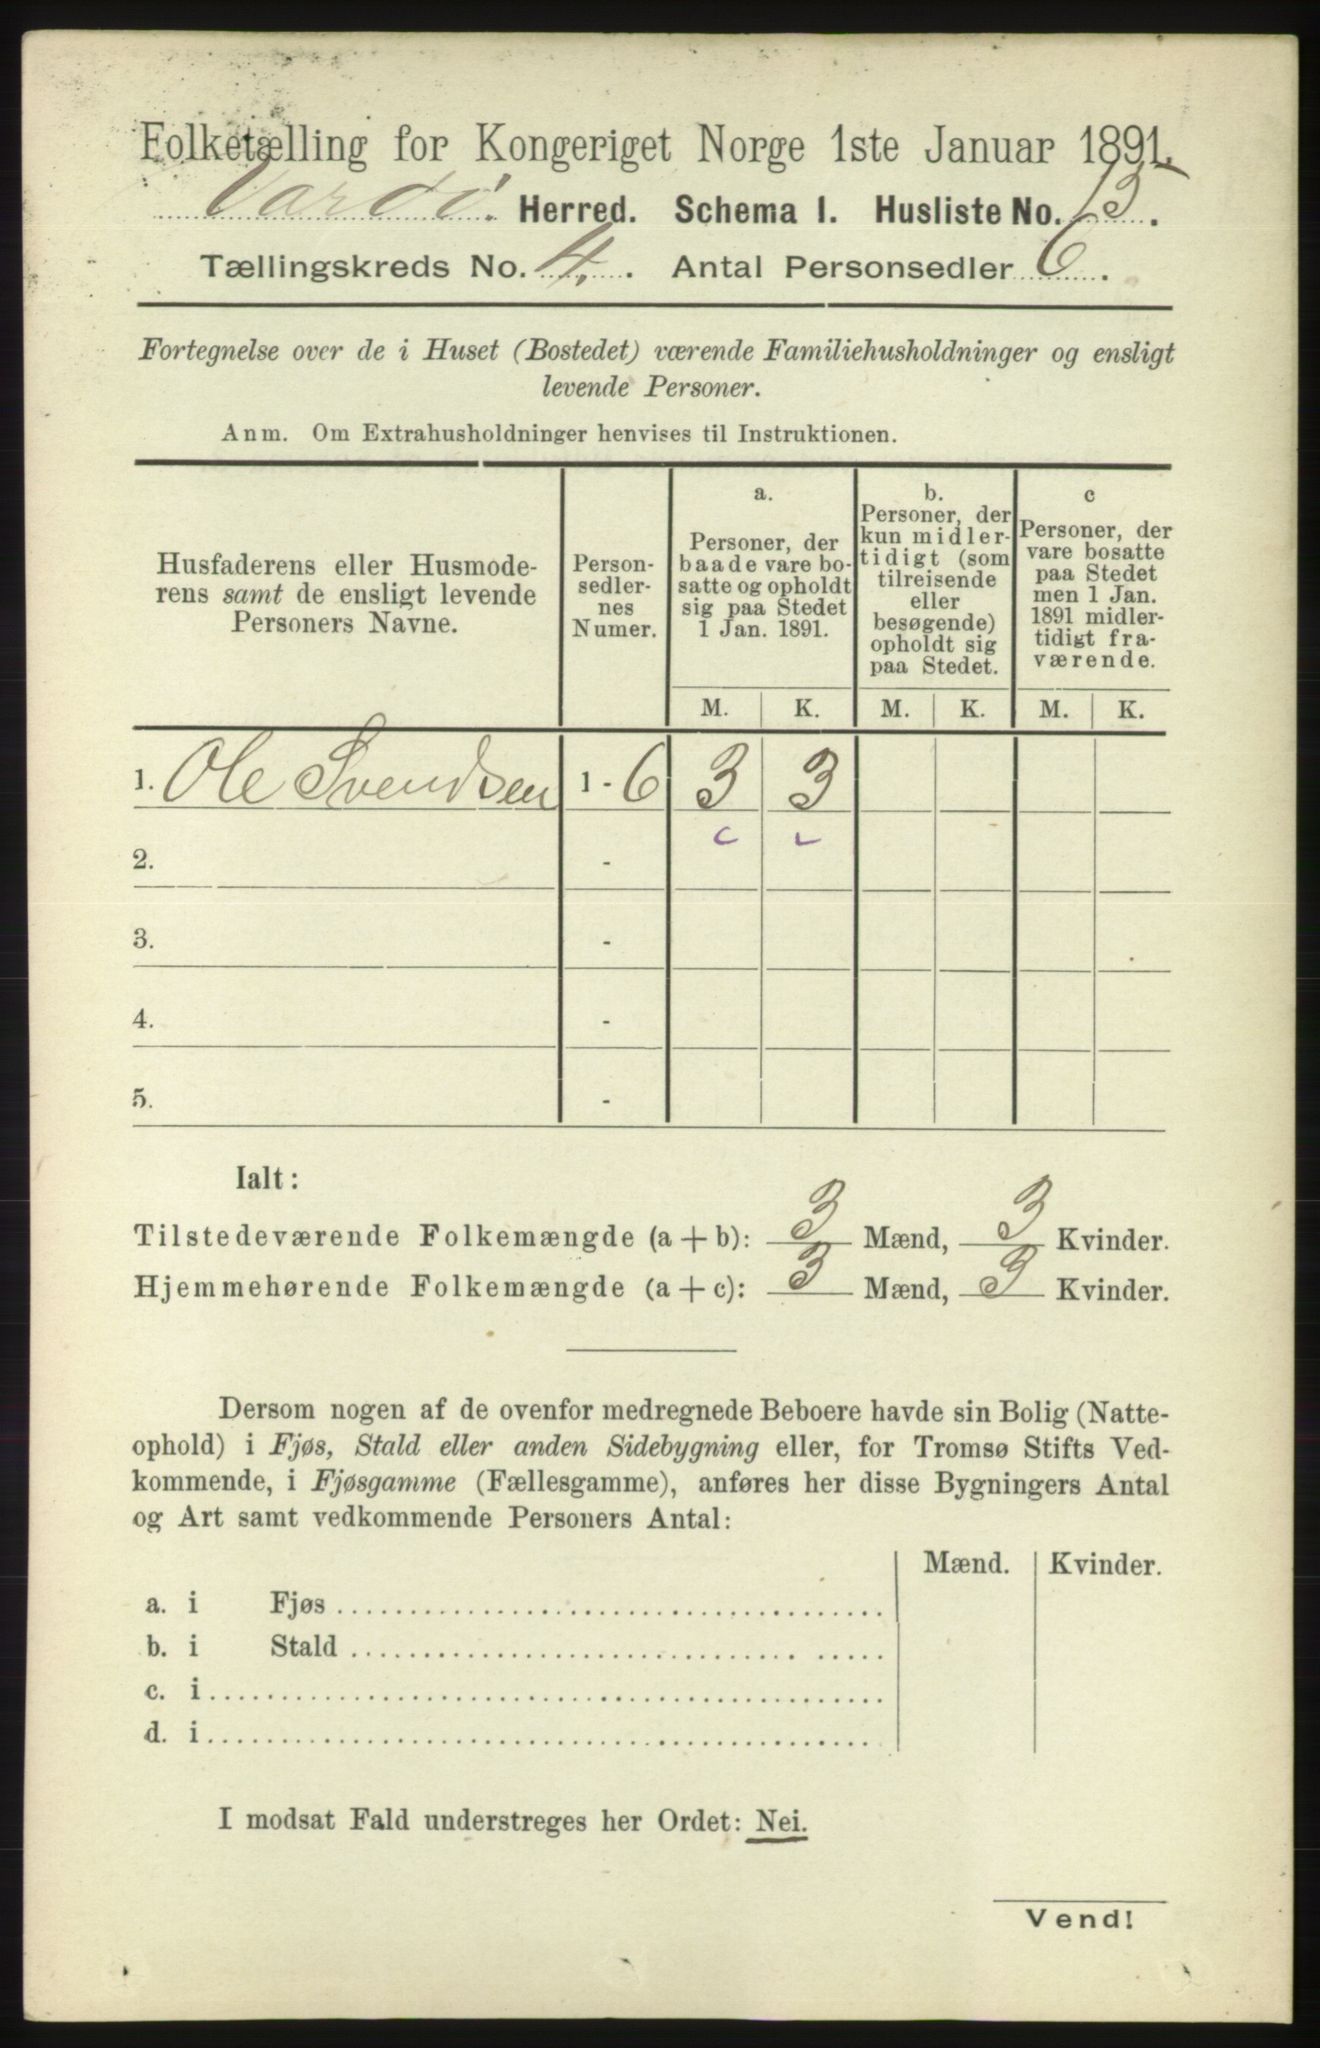 Folketælling for Kongeriget Norge 1ste Januar 1891.
Vardø. Herred. Schema I. Husliste No. 15.
Tællingskreds No. 4. Antal Personsedler 6.
Fortegnelse over de i Huset (Bostedet) værende Familiehusholdninger og ensligt
levende Personer.
Anm. Om Extrahusholdninger henvises til Instruktionen.
Husfaderens eller Husmode-
rens samt de ensligt levende
Personers Navne.
Person-
sedler-
nes
Numer.
a.
Personer, der
baade vare bo-
satte og opholdt
sig paa Stedet
1 Jan. 1891.
b.
Personer, der
kun midler-
tidigt (som
tilreisende
eller
besøgende)
opholdt sig
paa Stedet.
c
Personer, der
vare bosatte
paa Stedet
men 1 Jan.
1891 midler-
tidigt fra-
værende.
M. K. M. K. M. K.
1. Ole Svendsen 1 - 6 3 3
2. -
3. -
4. -
5. -
Ialt:
Tilstedeværende Folkemængde (a + b): 3 Mænd, 3 Kvinder.
Hjemmehørende Folkemængde (a + c): 3 Mænd, 3 Kvinder.
Dersom nogen af de ovenfor medregnede Beboere havde sin Bolig (Natte-
ophold) i Fjøs, Stald eller anden Sidebygning eller, for Tromsø Stifts Ved-
kommende, i Fjøsgamme (Fællesgamme), anføres her disse Bygningers Antal
og Art samt vedkommende Personers Antal:
Mænd. Kvinder.
a. i Fjøs
b. i Stald
c. i
d. i
I modsat Fald understreges her Ordet: Nei.
Vend!